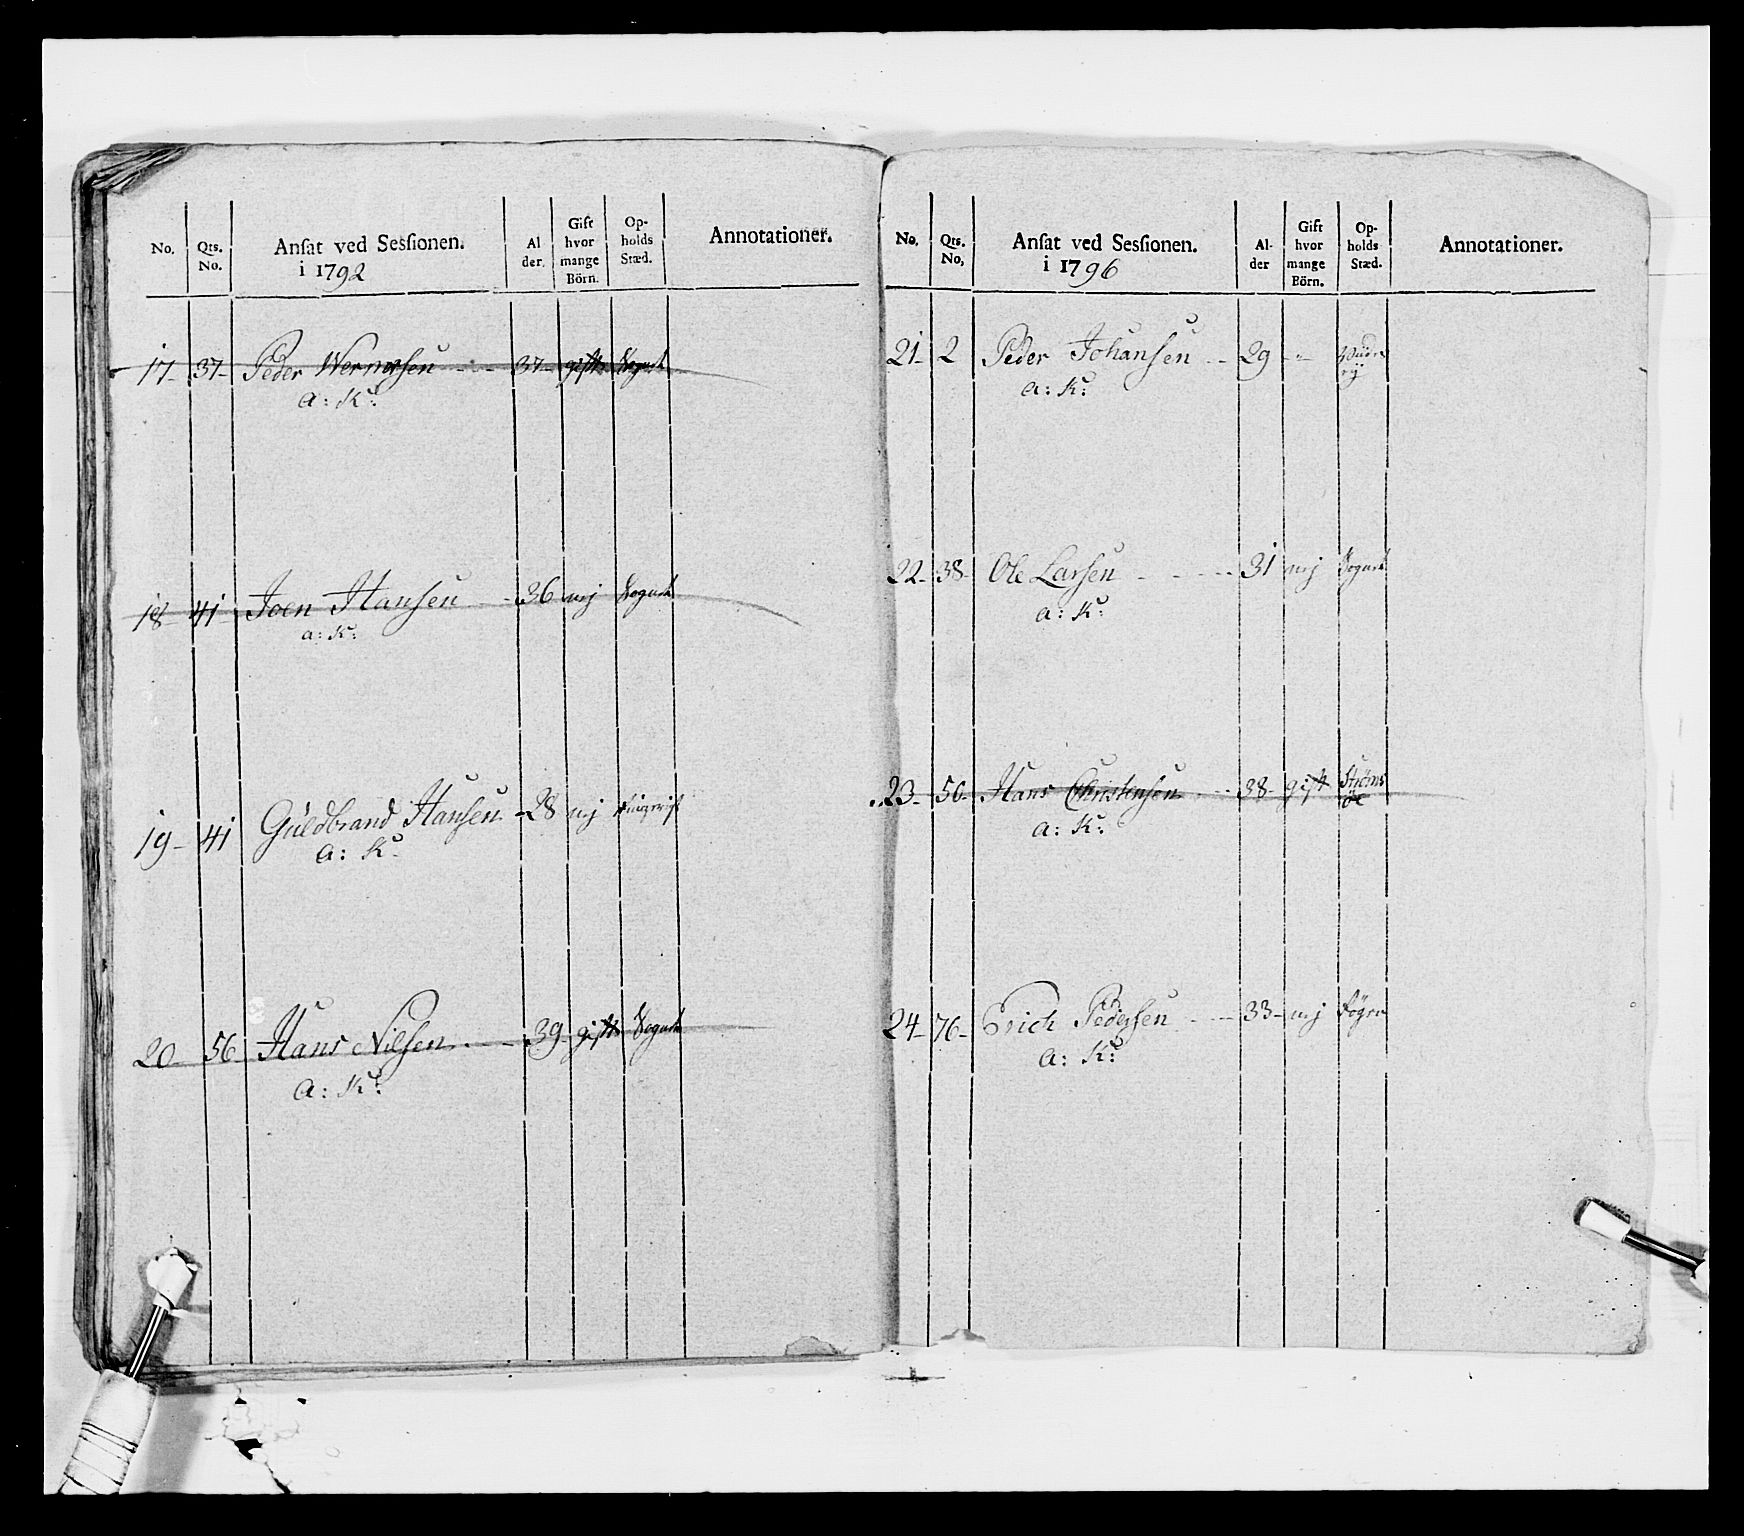 No. Qts. No. Ansat ved Sessionen. i 1792 Al der. Gift hvor mange Börn. Op- holds Stæd. Annotationer.
17 37 Peder Wernersen 37 gift Sognet
a: K:
18 41 Joen Hansen 36 nej Sognet
a: K:
19 41 Guldbrand Hansen 28 nej
a: K:
20 56 Hans Nilsen 39 gift Sognet
a: K:
No. Qts. No. Ansat ved Sessionen. i 1796 Al- der Gift hvor mange Börn. Op- holds Stæd. Annotationer.
21 2 Peder Johansen 29 "
a: K:
22 38 Ole Larsen 31 nej Sognet
a: K:
23 50 Hans Christensen 38 gift Strøms øe
a: K:
24 76 Erich Pedersen 33 nej
a: K: